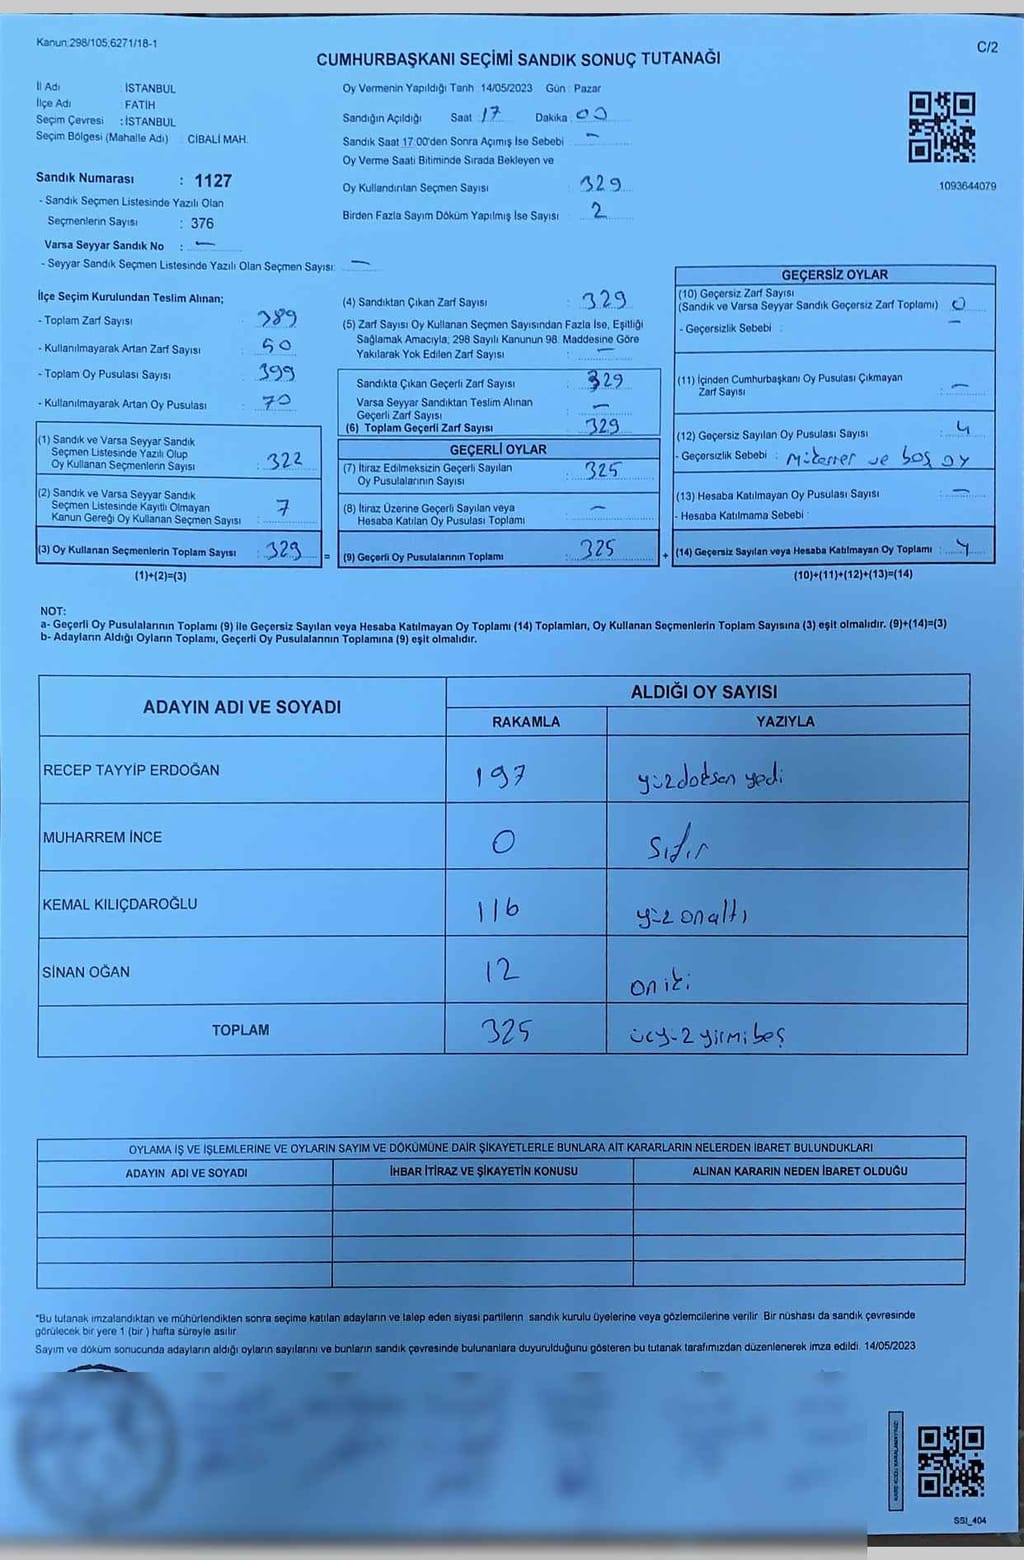 Kanun:298/105;6271/18-1
C/2
CUMHURBAŞKANI SEÇİMİ SANDIK SONUÇ TUTANAĞI
İl Adı : İSTANBUL
İlçe Adı : FATİH
Seçim Çevresi : İSTANBUL
Seçim Bölgesi (Mahalle Adı) : CİBALİ MAH.
Sandık Numarası : 1127
- Sandık Seçmen Listesinde Yazılı Olan
Seçmenlerin Sayısı : 376
Varsa Seyyar Sandık No : —
- Seyyar Sandık Seçmen Listesinde Yazılı Olan Seçmen Sayısı: —
Oy Vermenin Yapıldığı Tarih 14/05/2023 Gün : Pazar
Sandığın Açıldığı Saat : 17 Dakika : 00
Sandık Saat 17:00'den Sonra Açımış İse Sebebi : —
Oy Verme Saati Bitiminde Sırada Bekleyen ve
Oy Kullandırılan Seçmen Sayısı : 329
Birden Fazla Sayım Döküm Yapılmış İse Sayısı : 2
1093644079
İlçe Seçim Kurulundan Teslim Alınan;
- Toplam Zarf Sayısı : 389
- Kullanılmayarak Artan Zarf Sayısı : 50
- Toplam Oy Pusulası Sayısı : 399
- Kullanılmayarak Artan Oy Pusulası : 70
(1) Sandık ve Varsa Seyyar Sandık
Seçmen Listesinde Yazılı Olup
Oy Kullanan Seçmenlerin Sayısı : 322
(2) Sandık ve Varsa Seyyar Sandık
Seçmen Listesinde Kayıtlı Olmayan
Kanun Gereği Oy Kullanan Seçmen Sayısı : 7
(3) Oy Kullanan Seçmenlerin Toplam Sayısı : 329 =
(1)+(2)=(3)
(4) Sandıktan Çıkan Zarf Sayısı : 329
(5) Zarf Sayısı Oy Kullanan Seçmen Sayısından Fazla İse, Eşitliği
Sağlamak Amacıyla, 298 Sayılı Kanunun 98. Maddesine Göre
Yakılarak Yok Edilen Zarf Sayısı : —
Sandıkta Çıkan Geçerli Zarf Sayısı : 329
Varsa Seyyar Sandıktan Teslim Alınan
Geçerli Zarf Sayısı : —
(6) Toplam Geçerli Zarf Sayısı : 329
GEÇERLİ OYLAR
(7) İtiraz Edilmeksizin Geçerli Sayılan
Oy Pusulalarının Sayısı : 325
(8) İtiraz Üzerine Geçerli Sayılan veya
Hesaba Katılan Oy Pusulası Toplamı : —
(9) Geçerli Oy Pusulalarının Toplamı : 325 +
GEÇERSİZ OYLAR
(10) Geçersiz Zarf Sayısı
(Sandık ve Varsa Seyyar Sandık Geçersiz Zarf Toplamı) : 0
- Geçersizlik Sebebi : —
(11) İçinden Cumhurbaşkanı Oy Pusulası Çıkmayan
Zarf Sayısı : —
(12) Geçersiz Sayılan Oy Pusulası Sayısı : 4
- Geçersizlik Sebebi : ve boş oy
(13) Hesaba Katılmayan Oy Pusulası Sayısı : —
- Hesaba Katılmama Sebebi :
(14) Geçersiz Sayılan veya Hesaba Katılmayan Oy Toplamı : 4
(10)+(11)+(12)+(13)=(14)
NOT:
a- Geçerli Oy Pusulalarının Toplamı (9) ile Geçersiz Sayılan veya Hesaba Katılmayan Oy Toplamı (14) Toplamları, Oy Kullanan Seçmenlerin Toplam Sayısına (3) eşit olmalıdır. (9)+(14)=(3)
b- Adayların Aldığı Oyların Toplamı, Geçerli Oy Pusulalarının Toplamına (9) eşit olmalıdır.
ADAYIN ADI VE SOYADI
ALDIĞI OY SAYISI
RAKAMLA YAZIYLA
RECEP TAYYİP ERDOĞAN 197 yüzdoksan yedi
MUHARREM İNCE 0 sıfır
KEMAL KILIÇDAROĞLU 116 yüz onaltı
SİNAN OĞAN 12 oniki
TOPLAM 325 üçyüz yirmi beş
OYLAMA İŞ VE İŞLEMLERİNE VE OYLARIN SAYIM VE DÖKÜMÜNE DAİR ŞİKAYETLERLE BUNLARA AİT KARARLARIN NELERDEN İBARET BULUNDUKLARI
ADAYIN ADI VE SOYADI İHBAR İTİRAZ VE ŞİKAYETİN KONUSU ALINAN KARARIN NEDEN İBARET OLDUĞU
*Bu tutanak imzalandıktan ve mühürlendikten sonra seçime katılan adayların ve talep eden siyasi partilerin sandık kurulu üyelerine veya gözlemcilerine verilir. Bir nüshası da sandık çevresinde
görülecek bir yere 1 (bir ) hafta süreyle asılır.
Sayım ve döküm sonucunda adayların aldığı oyların sayılarını ve bunların sandık çevresinde bulunanlara duyurulduğunu gösteren bu tutanak tarafımızdan düzenlenerek imza edildi. 14/05/2023
KARE KODU KARALAMAYINIZ!
SSI_404